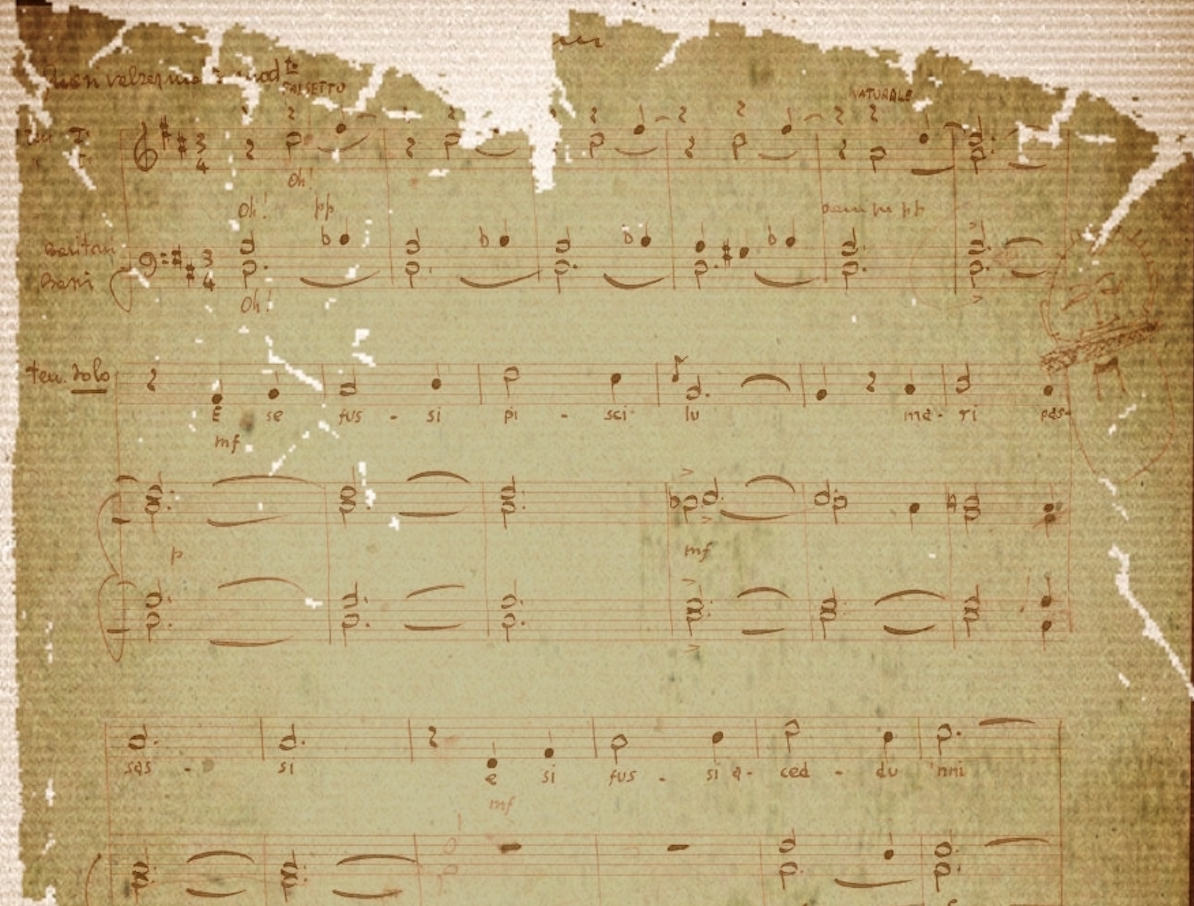 FALSETTO
NATURALE
3
4
Oh!
Oh! pp
sempre pp
Baritoni
Bassi
3
4
Oh!
ten. solo
E se fus - si pi - sci lu ma - ri pas-
mf
p mf
sas - si e si fus - si a - ced - du 'nni
mf